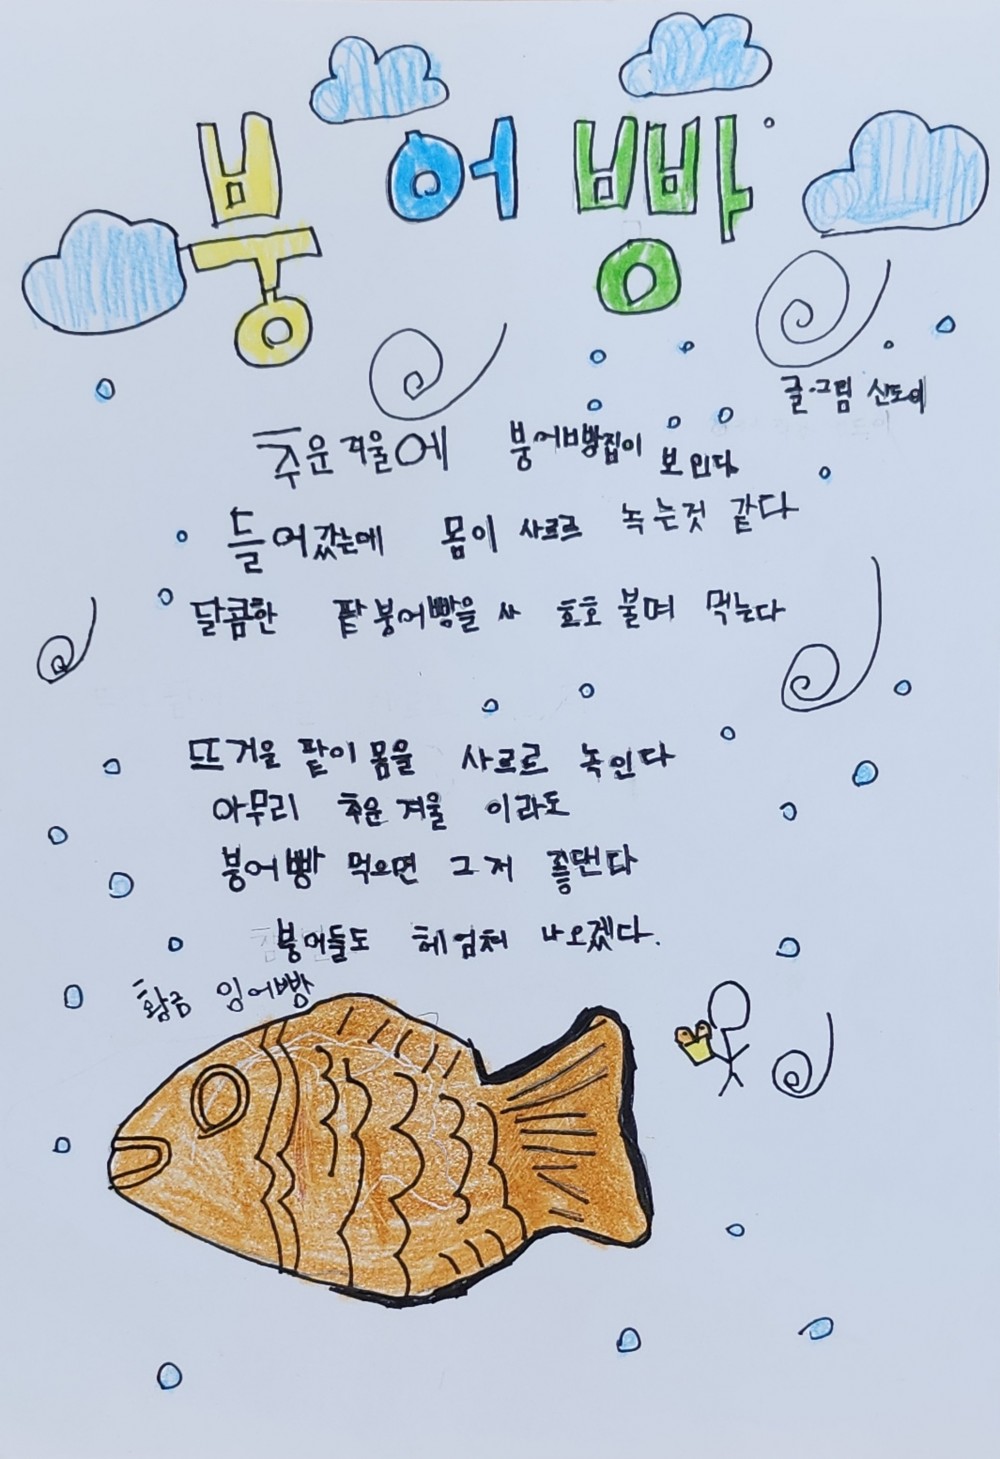 붕어빵
글·그림 신도이
추운 겨울에 붕어빵집이 보인다
들어갔는데 몸이 사르르 녹는것 같다
달콤한 팥 붕어빵을 사 호호 불며 먹는다
뜨거운 팥이 몸을 사르르 녹인다
아무리 추운 겨울 이라도
붕어빵 먹으면 그저 좋댄다
붕어들도 헤엄쳐 나오겠다.
황금 잉어빵